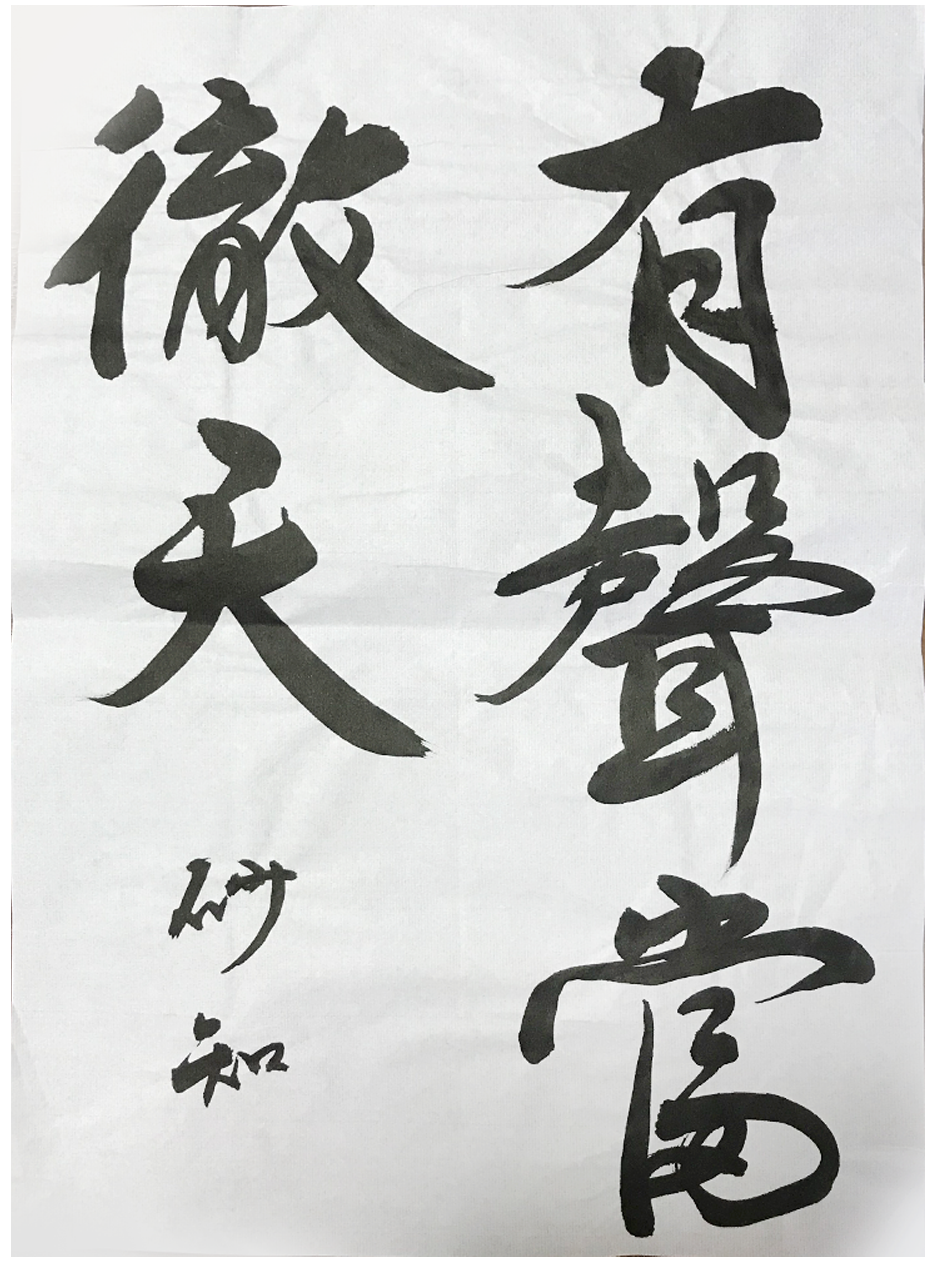 有聲當
徹天
砂知